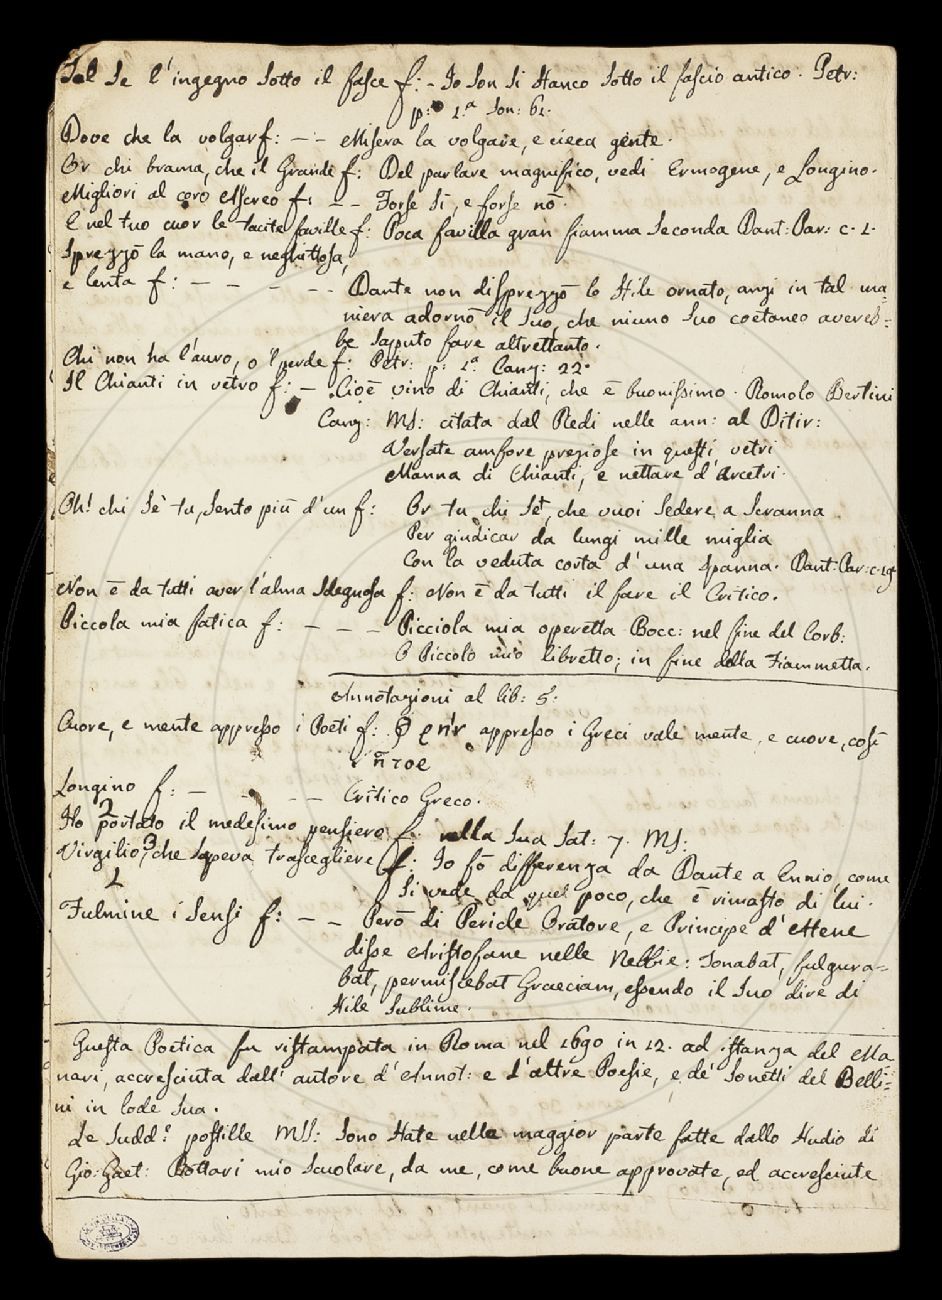 Tal se l'ingegno sotto il fasce f: - Io son sì stanco sotto il fascio antico. Petr:
p: 1.ª son: 61.
Dove che la volgar f: - - Misera la volgare, e cieca gente.
Or chi brama, che il Grande f: Del parlare magnifico, vedi Ermogene, e Longino.
Migliori al coro Ascreo f: - - Forse sì, e forse nò.
E nel tuo cuor le tacite faville f: Poca favilla gran fiamma seconda Dant: Par: c. 1.
Sprezzò la mano, e neghittosa,
e lenta f: - - - - - Dante non disprezzò lo stile ornato, anzi in tal ma-
niera adornò il suo, che niuno suo coetaneo avereb=
be saputo fare altrettanto.
Chi non ha l'auro, o 'l perde f: Petr: p: 1.ª Canz: 22.
Il Chianti in vetro f: - Cioè vino di Chianti, che è buonissimo. Romolo Bertini
Canz: MS: citata dal Redi nelle ann: al Ditir:
Versate amfore preziose in questi vetri
Manna di Chianti, e nettare d'Arcetri.
Oh! chi sè tu, sento più d'un f: Or tu chi se', che vuoi sedere a scranna
Per giudicar da lungi mille miglia
Con la veduta corta d'una spanna. Dant: Par: c. 19.
Non è da tutti aver l'alma sdegnosa f: Non è da tutti il fare il Critico.
Piccola mia fatica f: - - - Picciola mia operetta Bocc: nel fine del Corb:
O Piccolo mio libretto; in fine della Fiammetta.
Annotazioni al lib: 5.
Cuore, e mente appresso i Poeti f: φρην appresso i Greci vale mente, e cuore, così
Longino f: - - - - Critico Greco.
2
Ho portato il medesimo pensiero f: nella sua Sat: 7. MS:
3
Virgilio, che sapeva trascegliere f: Io fò differenza da Dante a Ennio, come
si vede da quel poco, che è rimasto di lui.
1
Fulmine i sensi f: - - Però di Pericle Oratore, e Principe d'Atene
disse Aristofane nelle Nebbie: Tonabat, fulgura=
bat, permiscebat Graeciam, essendo il suo dire di
stile sublime.
Questa Poetica fu ristampata in Roma nel 1690 in 12. ad istanza del Ma
nari, accresciuta dall' autore d'Annot: e d'altre Poesie, e de' Sonetti del Belli=
ni in lode sua.
Le sudd.e postille MSS: sono state nella maggior parte fatte dallo studio di
Gio: Gaet: Bottari mio scuolare, da me, come buone approvate, ed accresciute